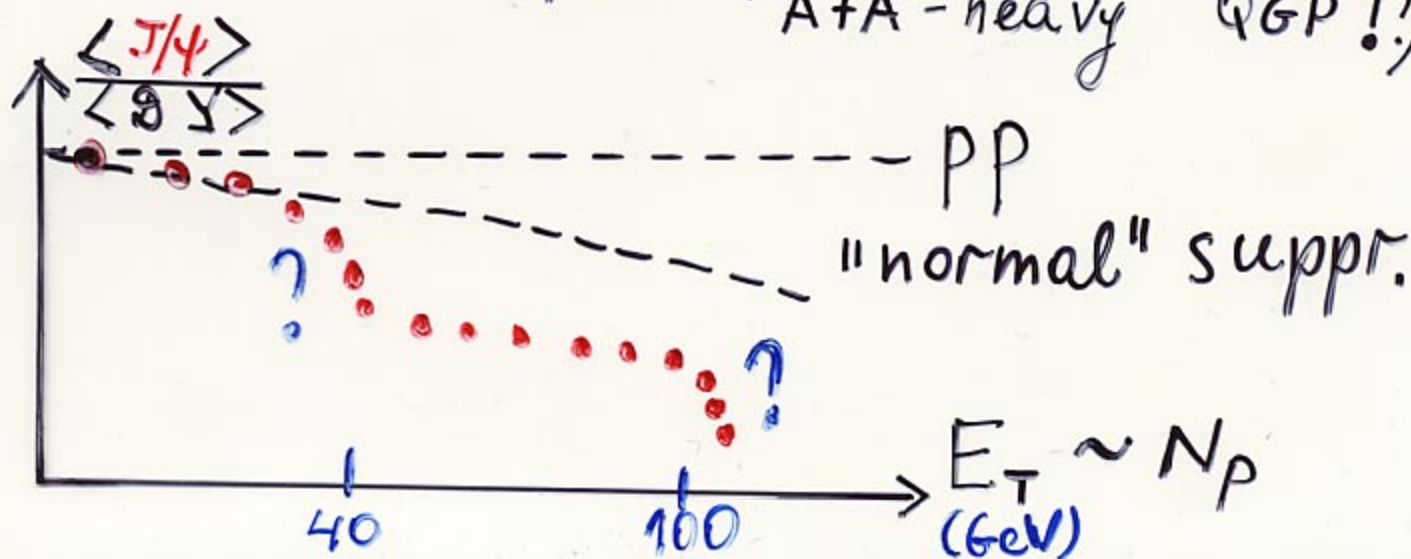 A+A - heavy QGP!!
<J/ψ>
<DY>
PP
"normal" suppr.
?
?
E_T ~ N_P
40
100
(GeV)